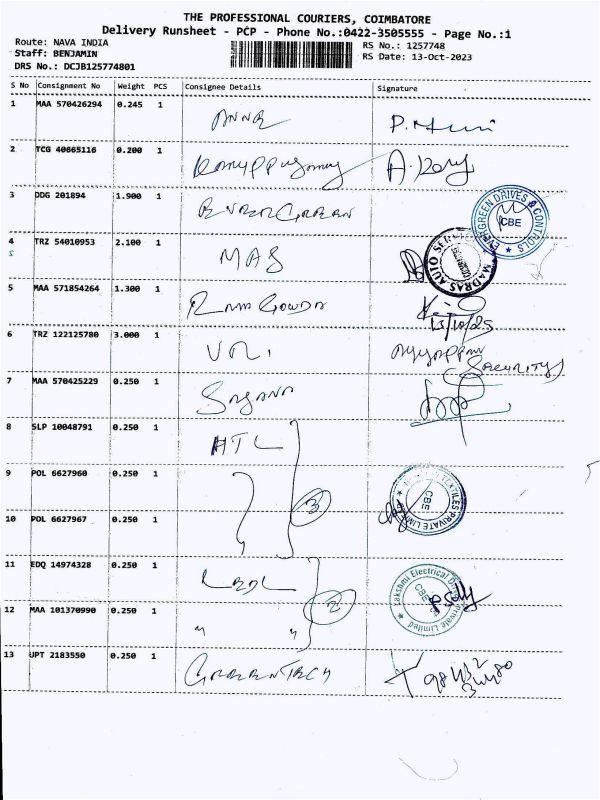 THE PROFESSIONAL COURIERS, COIMBATORE
Delivery Runsheet - PCP - Phone No.:0422-3505555 - Page No.:1
Route: NAVA INDIA
Staff: BENJAMIN
DRS No.: DCJB125774801
RS No.: 1257748
RS Date: 13-Oct-2023
S No Consignment No Weight PCS Consignee Details Signature
1 MAA 570426294 0.245 1
2 TCG 40665116 0.200 1
3 DDG 201894 1.900 1 EVERGREEN
EVERGREEN DRIVES & CONTROLS
CBE
4 TRZ 54010953 2.100 1 MAS
MADRAS AUTO SERVICE
5 MAA 571854264 1.300 1 Ram Gowda
6 TRZ 122125780 3.000 1
Ayyappan
Security
7 MAA 570425229 0.250 1 Sayana
8 SLP 10048791 0.250 1 HTL
9 POL 6627960 0.250 1 "
3
TEXTILES PRIVATE LIMITED
CBE
10 POL 6627967 0.250 1 "
11 EDQ 14974328 0.250 1
Lakshmi Electrical Private Limited
CBE
12 MAA 101370990 0.250 1 " "
2
13 UPT 2183550 0.250 1 GREENTECH